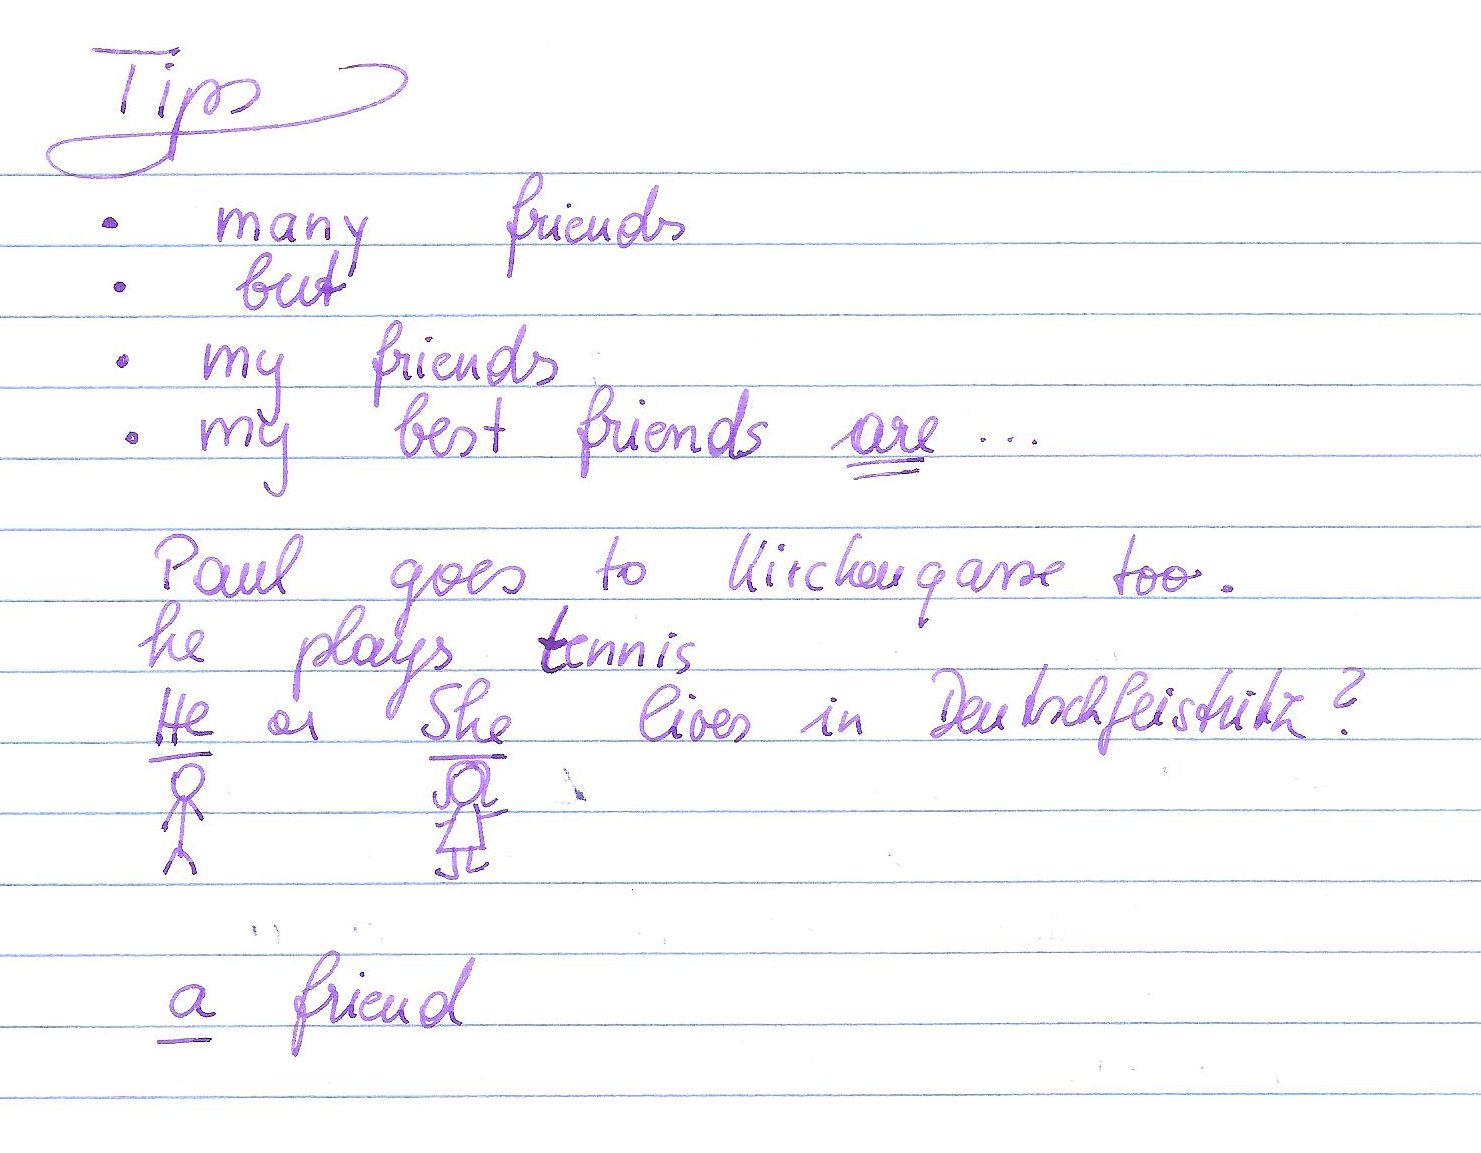 Tips
• many friends
• but
• my friends
• my best friends are ...
Paul goes to Kirchengasse too.
he plays tennis
He or She lives in Deutschfeistritz?
a friend